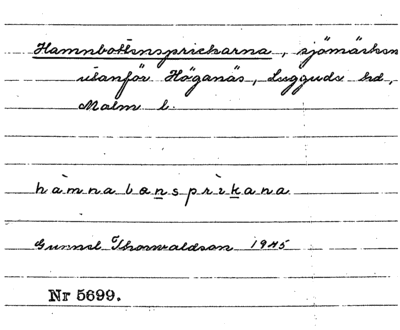 Hamnbottensprickarna, sjömärken
utanför Höganäs, Luggude hd,
Malm l.
hàmnabɷnsprìkana
Gunnel Thorvaldson 1945
Nr 5699.